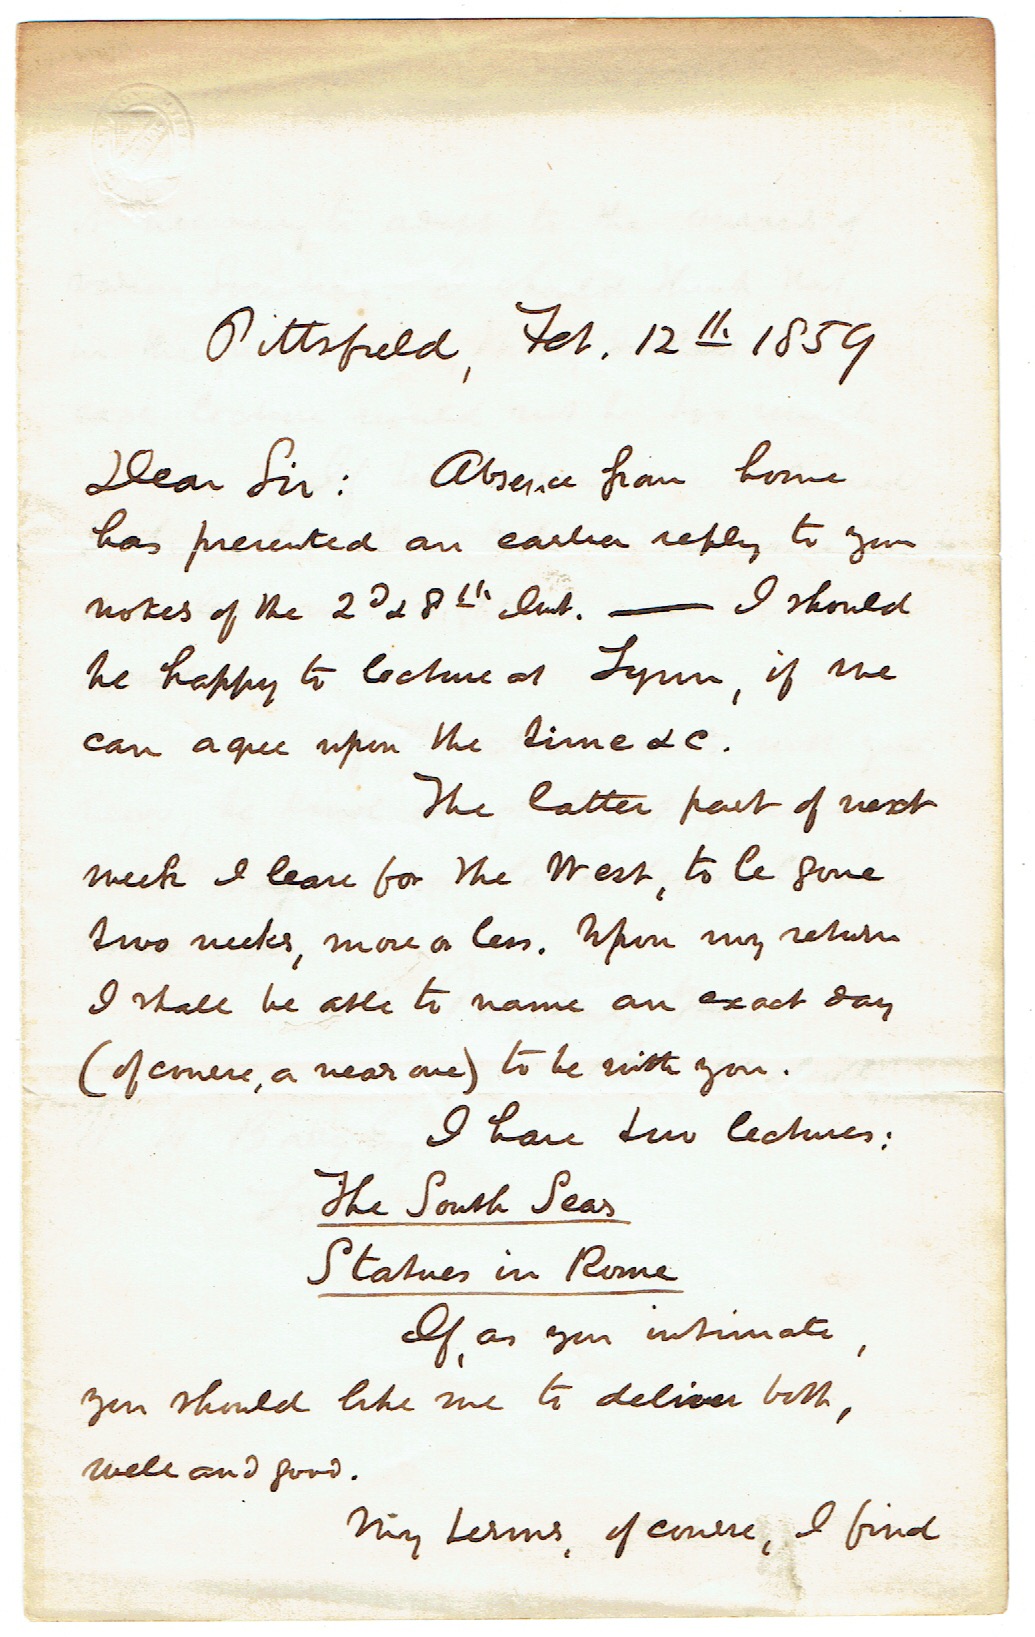 Pittsfield, Feb. 12th 1859
Dear Sir: Absence from home
has prevented an earlier reply to your
notes of the 2d & 8th Inst. — I should
be happy to lecture at Lynn, if we
can agree upon the time &c.
The latter part of next
week I leave for the West, to be gone
two weeks, more or less. Upon my return
I shall be able to name an exact day
(of course, a near one) to be with you.
I have two lectures:
The South Seas
Statues in Rome
If, as you intimate,
you should like me to deliver both,
well and good.
My terms, of course, I find